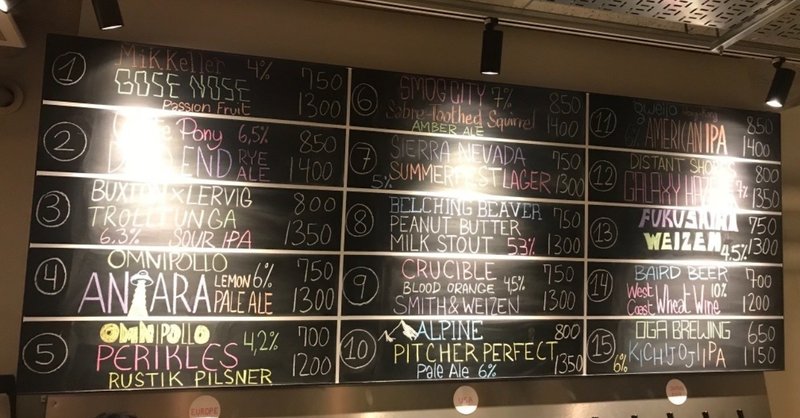 1 Mikkeller 4% 750
GOSE NOSE
Passion Fruit 1300
2 Pony 6,5% 850
END RYE
ALE 1400
3 BUXTON x LERVIG 800
TROLLTUNGA
6.3% SOUR IPA 1350
4 OMNIPOLLO 750
ANTARA LEMON 6%
PALE ALE 1300
5 OMNIPOLLO 4,2% 700
PERIKLES
RUSTIK PILSNER 1200
EUROPE
6 SMOG CITY 7% 850
Sabre-toothed Squirrel
AMBER ALE 1400
7 SIERRA NEVADA 750
5% SUMMERFEST LAGER 1300
8 BELCHING BEAVER 750
PEANUT BUTTER
MILK STOUT 5.3% 1300
9 CRUCIBLE 750
BLOOD ORANGE 4.5%
SMITH & WEIZEN 1300
10 ALPINE 800
PITCHER PERFECT
Pale Ale 6% 1350
USA
11 850
AMERICAN IPA
1400
12 DISTANT SHORES 800
GALAXY 7% 1350
13 750
WEIZEN 4.5% 1300
14 BAIRD BEER 700
West 10%
Coast Wheat Wine 1200
15 OGA BREWING 650
6% KICHIJOJIPA 1150